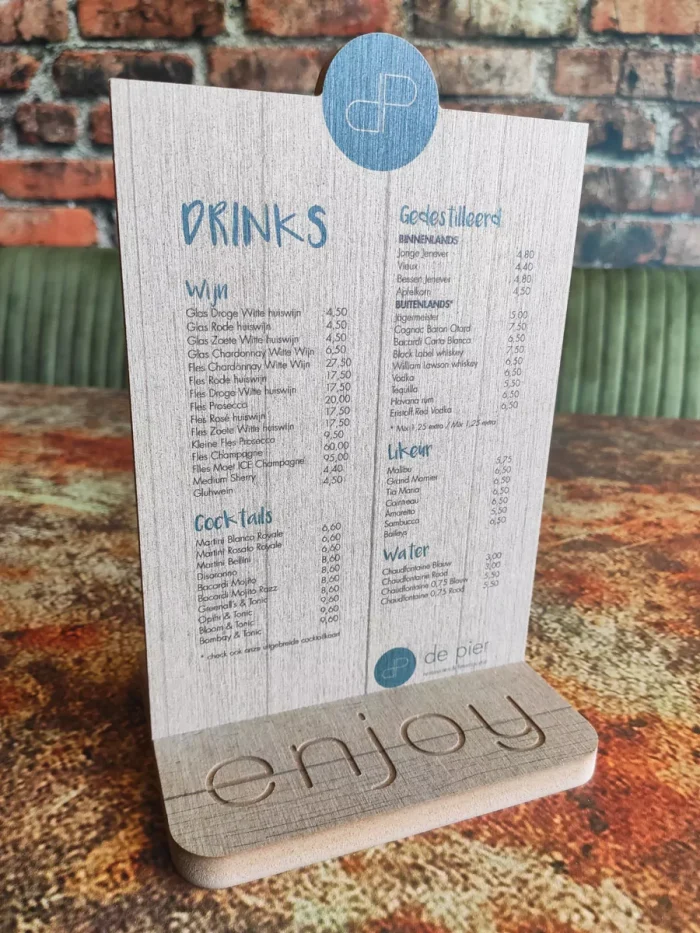 DRINKS
Wijn
Glas Droge Witte huiswijn 4,50
Glas Rode huiswijn 4,50
Glas Zoete Witte huiswijn 4,50
Glas Chardonnay Witte Wijn 6,50
Fles Chardonnay Witte Wijn 27,50
Fles Rode huiswijn 17,50
Fles Droge Witte huiswijn 17,50
Fles Prosecco 20,00
Fles Rosé huiswijn 17,50
Fles Zoete Witte huiswijn 17,50
Kleine Fles Prosecco 9,50
Fles Champagne 60,00
Flles Moet ICE Champagne 95,00
Medium Sherry 4,40
Gluhwein 4,50
Cocktails
Martini Blanco Royale 6,60
Martini Rosato Royale 6,60
Martini Bellini 6,60
Disaronno 8,60
Bacardi Mojito 8,60
Bacardi Mojito Razz 8,60
Greenall's & Tonic 8,60
Opihr & Tonic 9,60
Bloom & Tonic 9,60
Bombay & Tonic 9,60
* check ook onze uitgebreide cocktailkaart
Gedestilleerd
BINNENLANDS
Jonge Jenever 4,80
Vieux 4,40
Bessen Jenever 4,80
Apfelkorn 4,50
BUITENLANDS*
Jägermeister 5,00
Cognac Baron Otard 7,50
Bacardi Carta Blanca 6,50
Black Label whiskey 7,50
William Lawson whiskey 6,50
Vodka 6,50
Tequilla 5,50
Havana rum 6,50
Eristoff Red Vodka 6,50
* Mix 1,25 extra / Mix 1,25 extra
Likeur
Malibu 5,75
Grand Marnier 6,50
Tia Maria 6,50
Cointreau 6,50
Amaretto 6,50
Sambucca 5,50
Baileys 6,50
Water
Chaudfontaine Blauw 3,00
Chaudfontaine Rood 3,00
Chaudfontaine 0,75 Blauw 5,50
Chaudfontaine 0,75 Rood 5,50
de pier
enjoy